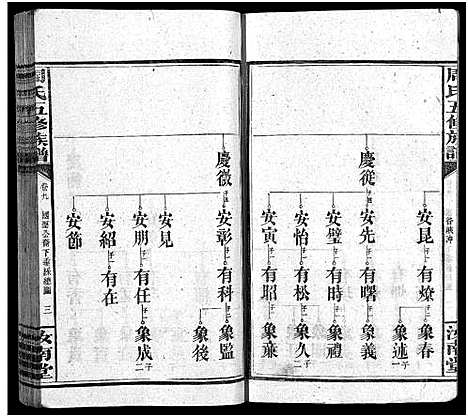 周氏五修族譜
汝南堂
安昆 有燎 象春
象述
慶從 安先 有曙 象義
安璧 有時 象禮
安怡 有松 象久
安寅 有昭 象兼
慶徵 安彰 有科 象監
象後
安見
安朋 有任 象成
安紹 有在
安節
周氏五修族譜
卷九
三
汝南堂